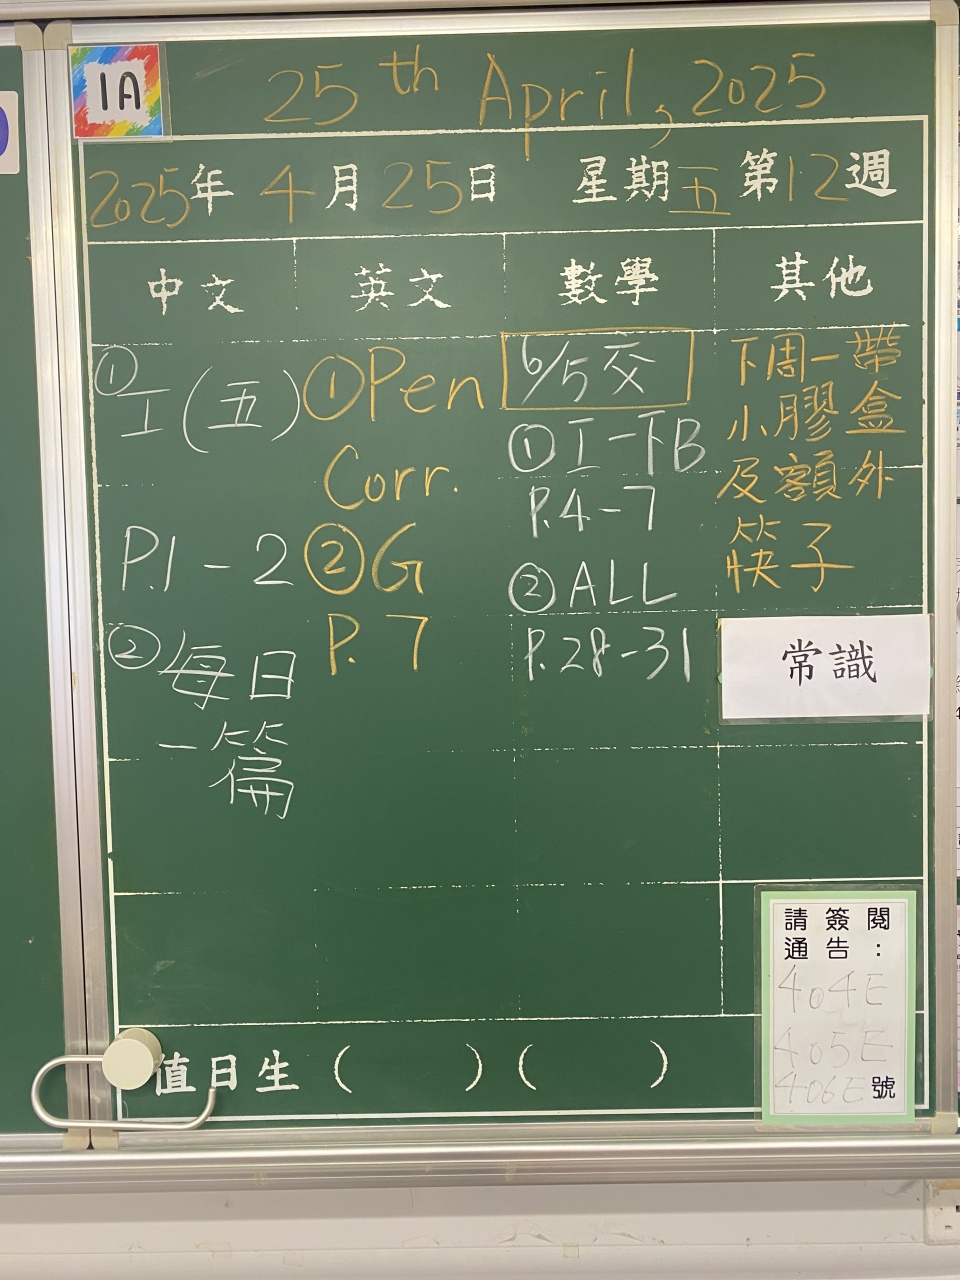 1A
25th April, 2025
2025年 4月25日 星期五 第12週
中文 英文 數學 其他
①工(五)
P.1-2
②每日
一篇
①Pen
Corr.
②G
P.7
6/5交
①工一下B
P.4-7
②ALL
P.28-31
下周一帶
小膠盒
及額外
筷子
常識
請簽閱
通告：
404E
405E
406E號
值日生 (    ) (    )